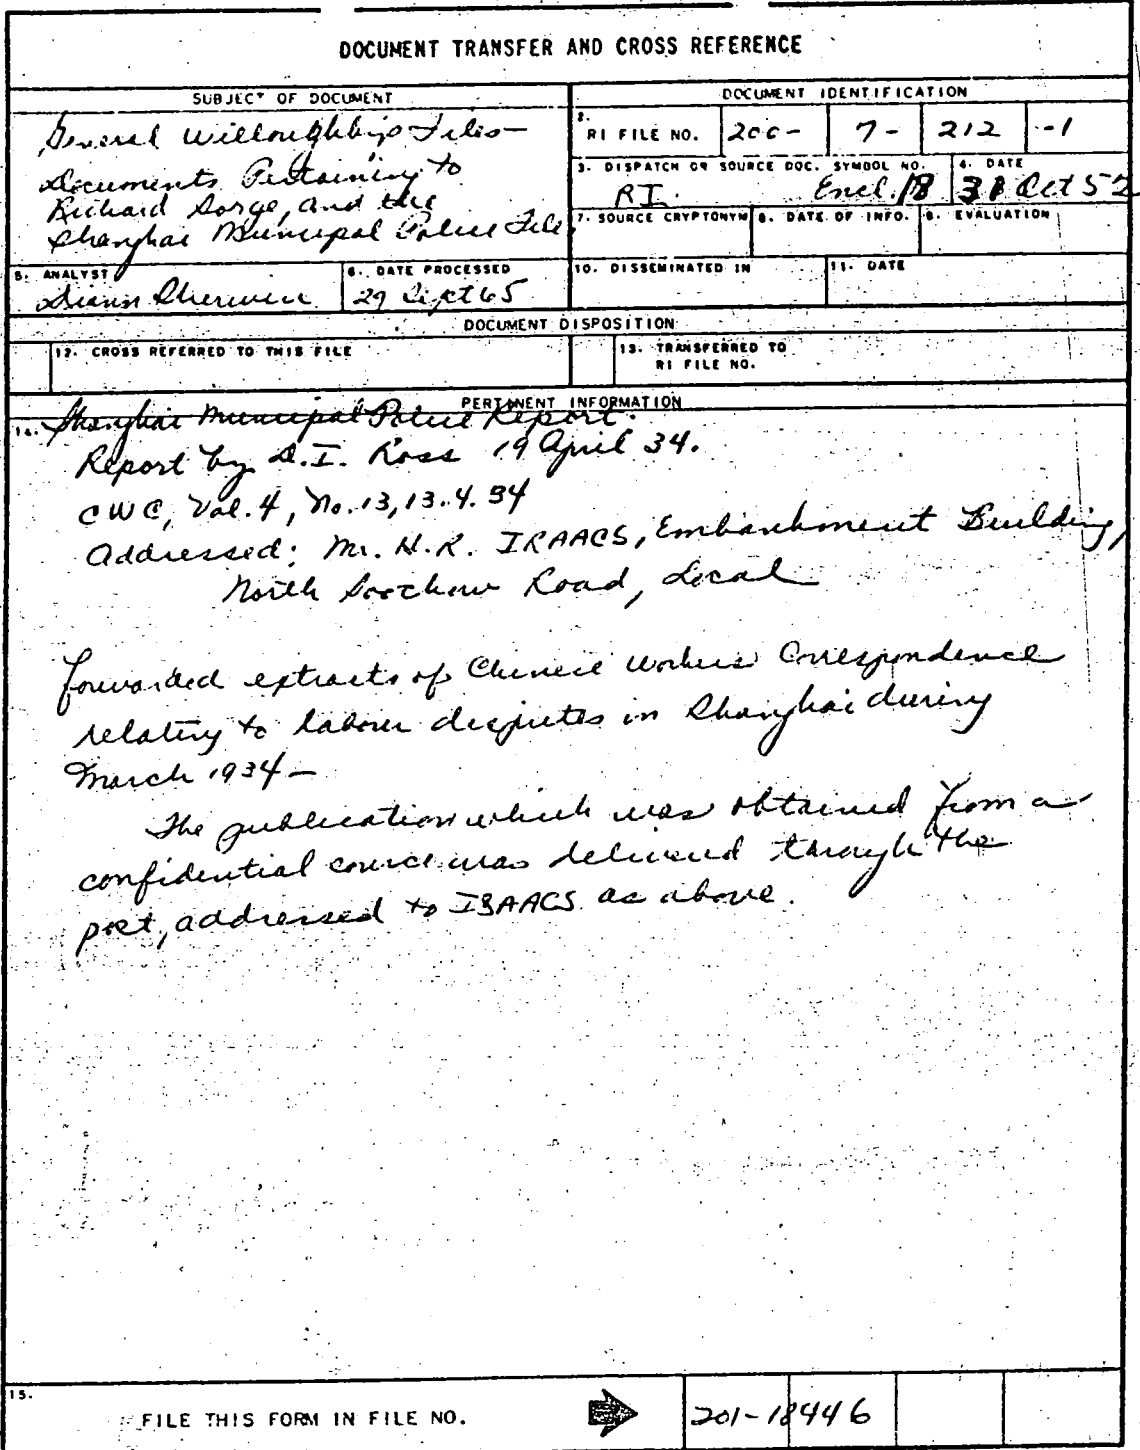 DOCUMENT TRANSFER AND CROSS REFERENCE
SUBJECT OF DOCUMENT
General Willoughby's Files—
Documents Pertaining to
Richard Sorge, and the
Shanghai Municipal Police File
DOCUMENT IDENTIFICATION
2. RI FILE NO. 200- 7- 212 -1
3. DISPATCH OR SOURCE DOC. SYMBOL NO.
RI. Encl. 18
4. DATE
31 Oct 52
7. SOURCE CRYPTONYM
8. DATE OF INFO.
9. EVALUATION
5. ANALYST
6. DATE PROCESSED
29 Sept 65
10. DISSEMINATED IN
11. DATE
DOCUMENT DISPOSITION
12. CROSS REFERRED TO THIS FILE
13. TRANSFERRED TO
RI FILE NO.
PERTINENT INFORMATION
14. Shanghai Municipal Police Report.
Report by D.I. Ross 19 April 34.
CWC, Vol. 4, No. 13, 13.4.34
Addressed: Mr. H.R. ISAACS, Embankment Building,
North Soochow Road, Local
forwarded extracts of Chinese Workers Correspondence
relating to labour disputes in Shanghai during
March 1934—
The publication which was obtained from a
confidential source was delivered through the
post, addressed to ISAACS as above.
15.
FILE THIS FORM IN FILE NO.
201-18446